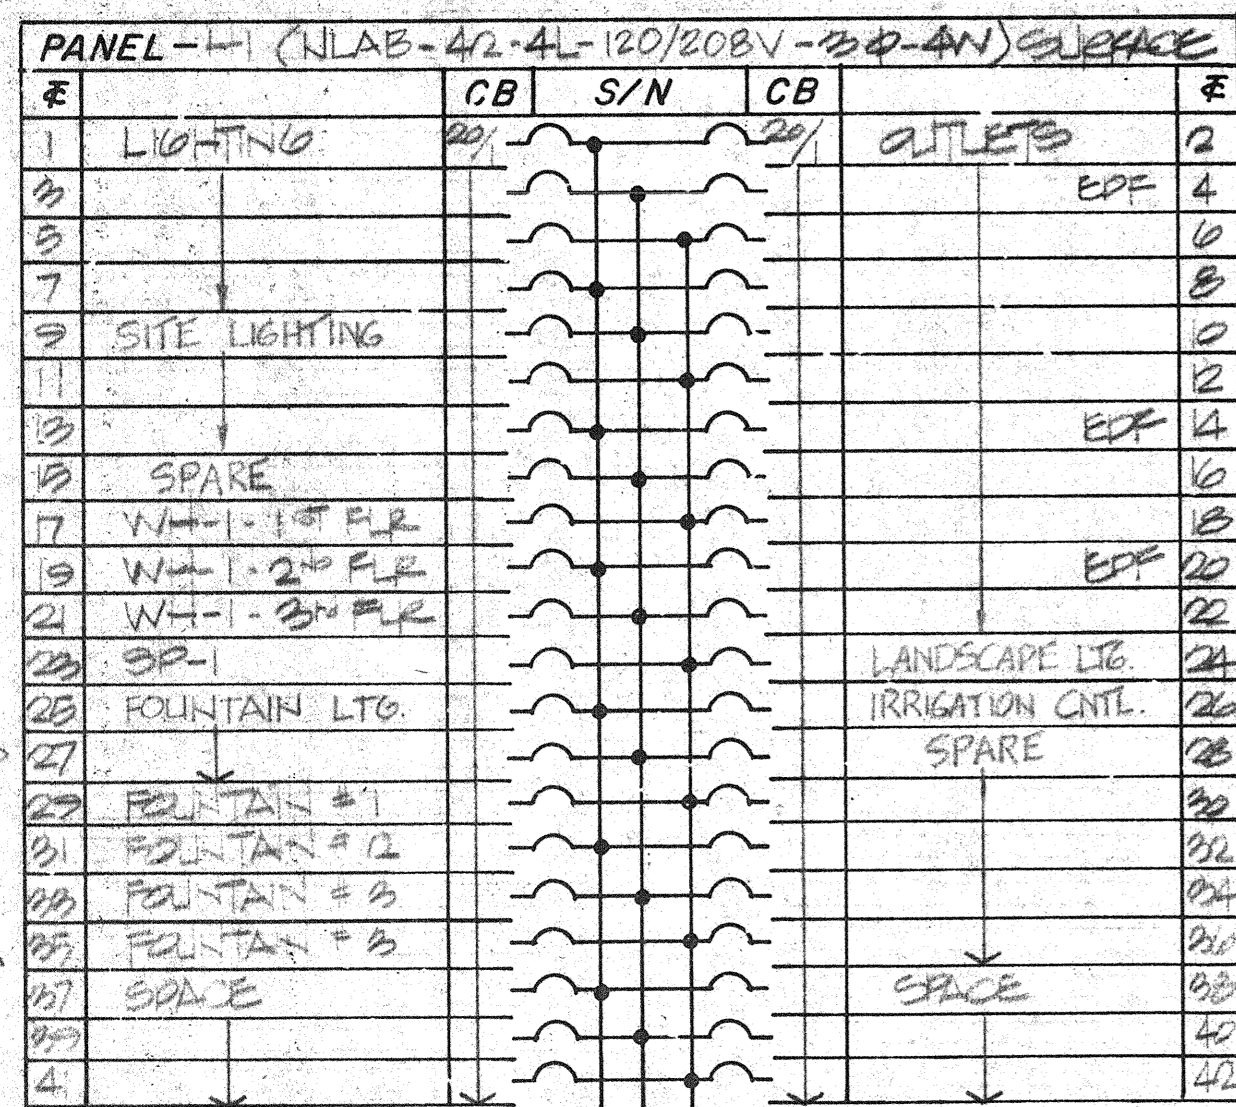 PANEL-H1 (NLAB-42-4L-120/208V-3Φ-4W) SURFACE
℄ CB S/N CB ℄
1 LIGHTING 20/1 20/1 OUTLETS 2
3 EDF 4
5 6
7 8
9 SITE LIGHTING 10
11 12
13 EDF 14
15 SPARE 16
17 WH-1-1ST FLR 18
19 WH-1-2ND FLR EDF 20
21 WH-1-3RD FLR 22
23 SP-1 LANDSCAPE LTG. 24
25 FOUNTAIN LTG. IRRIGATION CNTL. 26
27 SPARE 28
29 FOUNTAIN #1 30
31 FOUNTAIN #2 32
33 FOUNTAIN #3 34
35 FOUNTAIN #3 36
37 SPACE SPACE 38
39 40
41 42